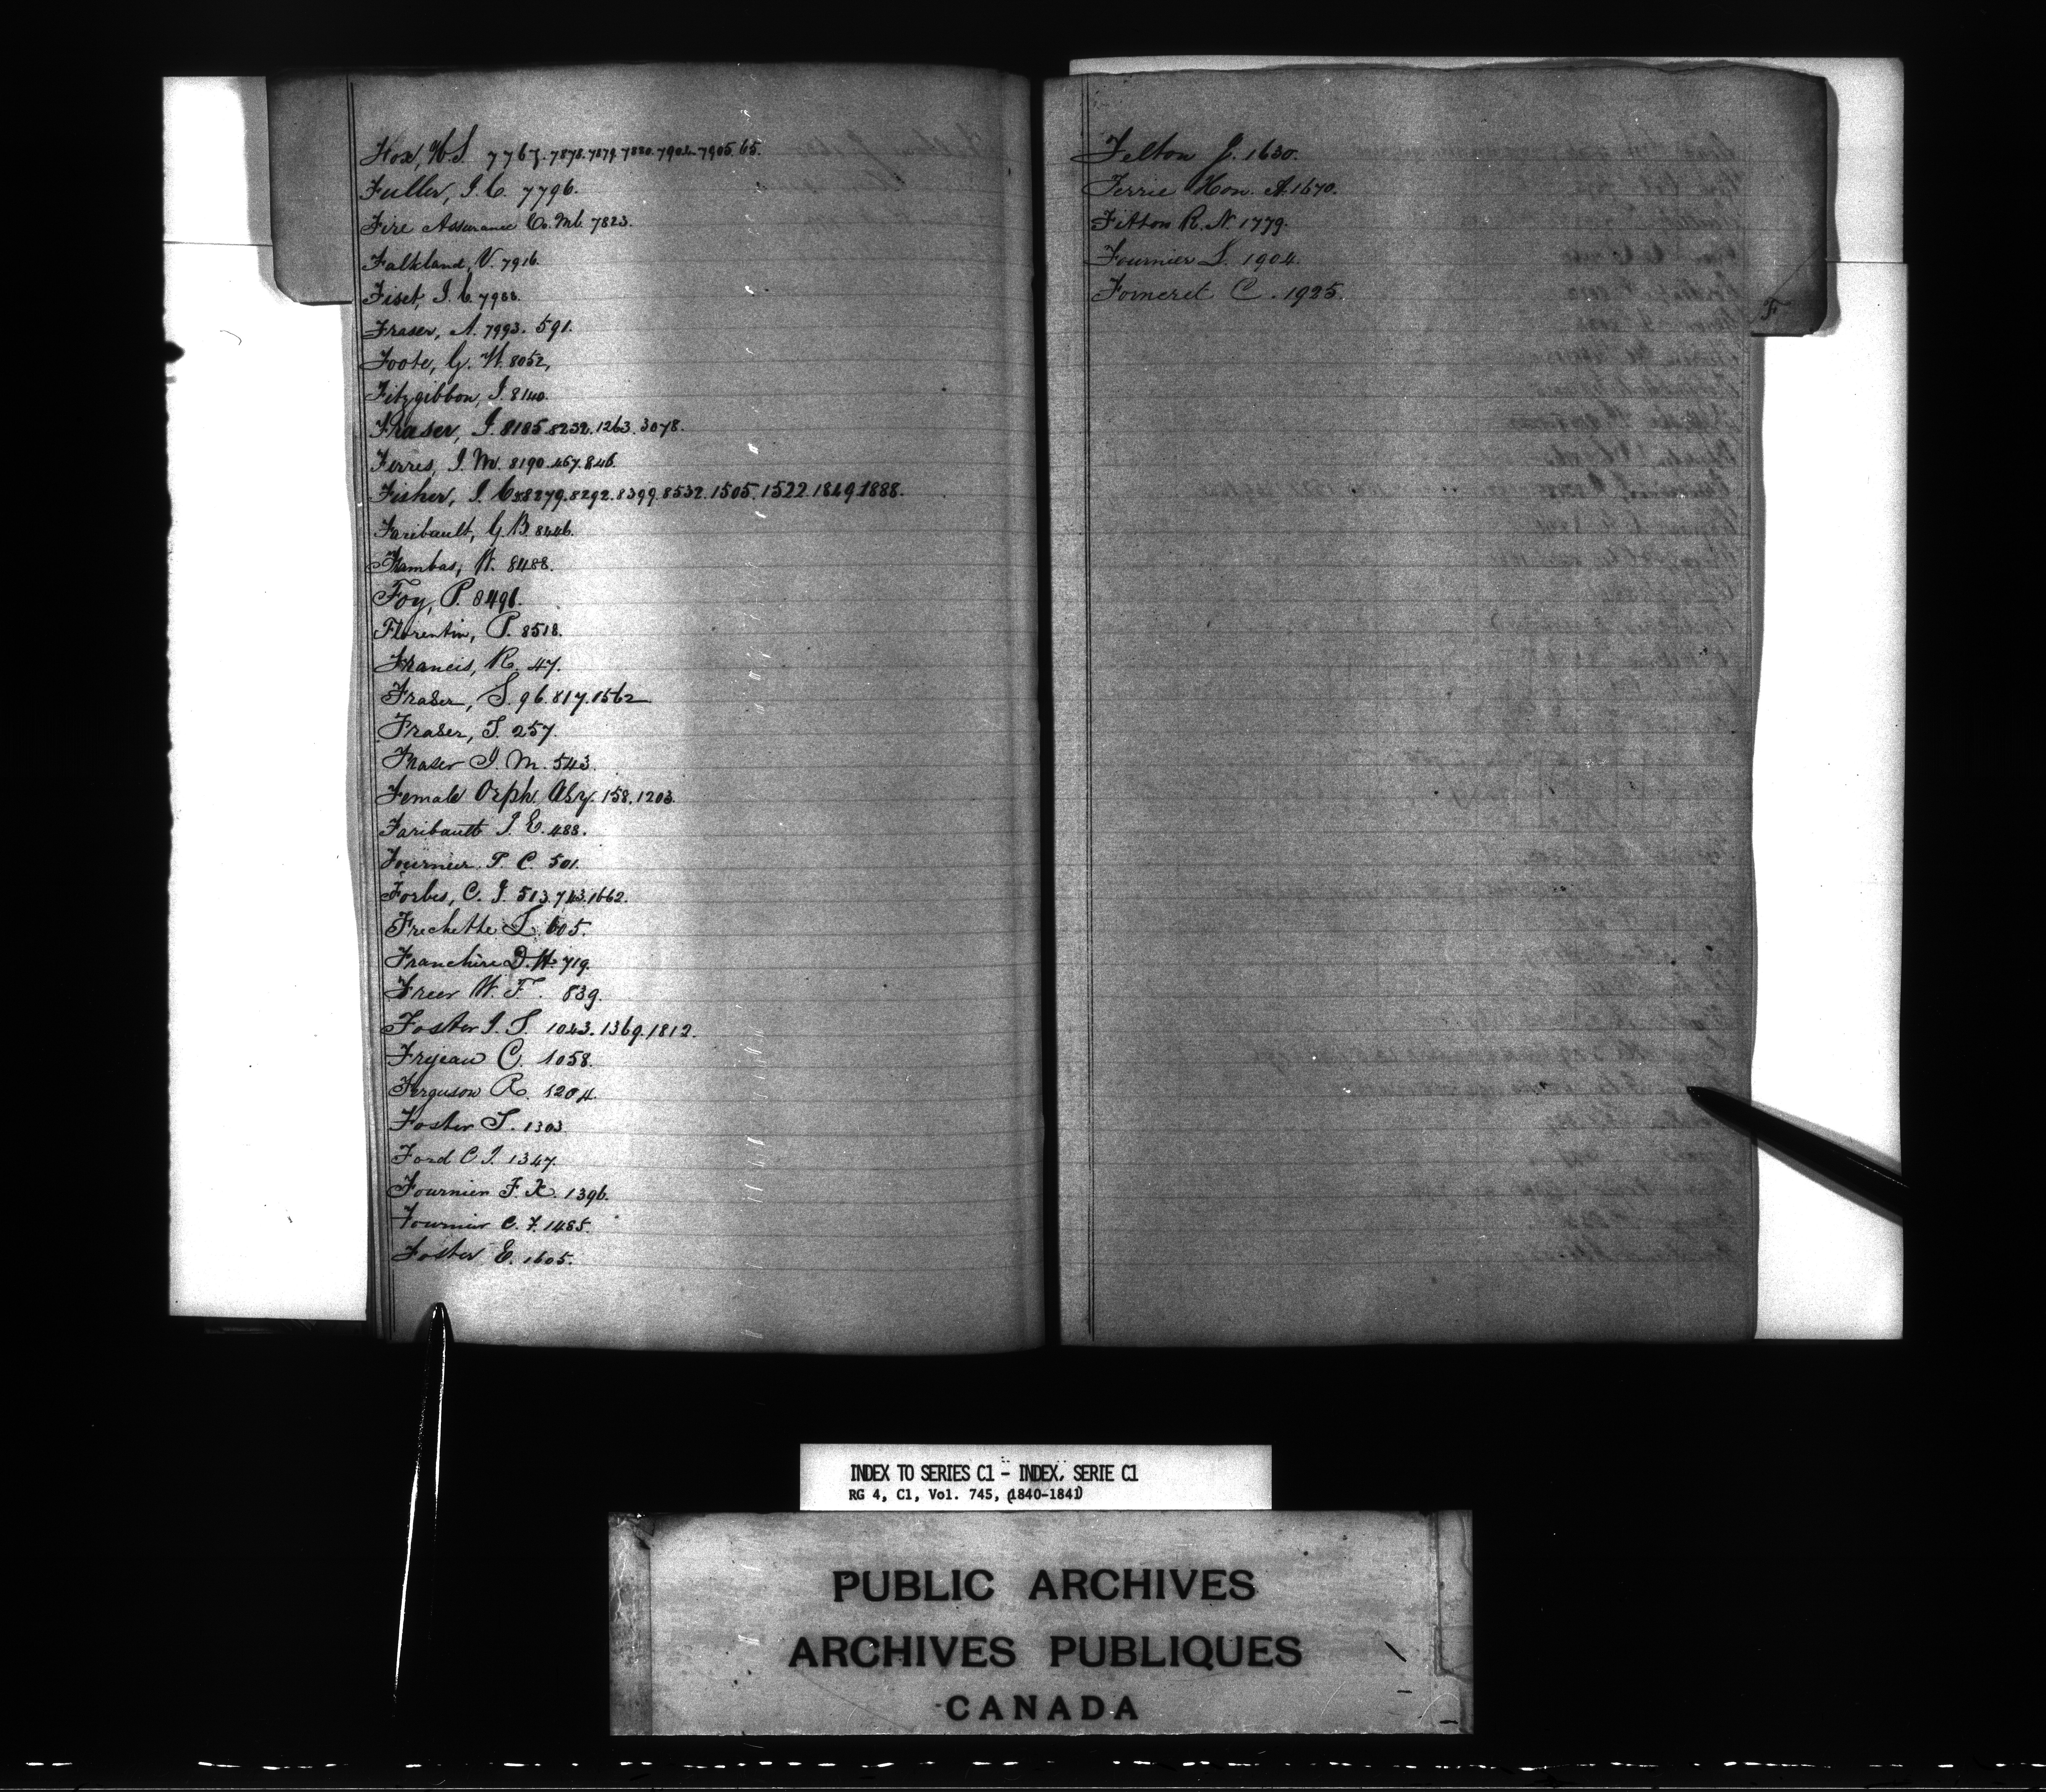 Fox, W. S. 7767. 7878. 7879. 7880. 7904. 7905. 65.
Fuller, J. C. 7796.
Fire Assurance Co. Ml. 7823.
Falkland, V. 7916.
Fiset, J. C. 7988.
Fraser, A. 7993. 591.
Foote, G. W. 8052,
Fitzgibbon, J. 8140.
Fraser, J. 8185. 8232. 1263. 3078.
Ferres, J. M. 8190. 467. 846.
Fisher, J. C. 8279. 8292. 8399. 8532. 1505. 1522. 1849. 1888.
Faribault, G. B. 8446.
Fambas, W. 8488.
Foy, P. 8491.
Florentin, P. 8518.
Francis, R. 47.
Fraser, S. 96. 817. 1562
Fraser, T. 257.
Fraser J. M. 543.
Female Orph. Asy. 158. 1203.
Faribault J. E. 488.
Fournier P. C. 501.
Forbes, C. J. 513. 743. 1662.
Frechette L. 605.
Franchère D. H. 719.
Freer W. F. 839.
Foster J. S. 1043. 1369. 1812.
Frijeau C. 1058.
Ferguson R. 1204.
Foster S. 1303
Ford C J. 1347.
Fournier F. X. 1396.
Fournier C. F. 1485.
Foster E. 1605.
Felton J. 1630.
Ferrie Hon. A. 1670.
Fitton R. N. 1779.
Fournier L. 1904.
Forneret C. 1925.
F
INDEX TO SERIES C1 - INDEX, SERIE C1
RG 4, C1, Vol. 745, (1840-1841)
PUBLIC ARCHIVES
ARCHIVES PUBLIQUES
CANADA